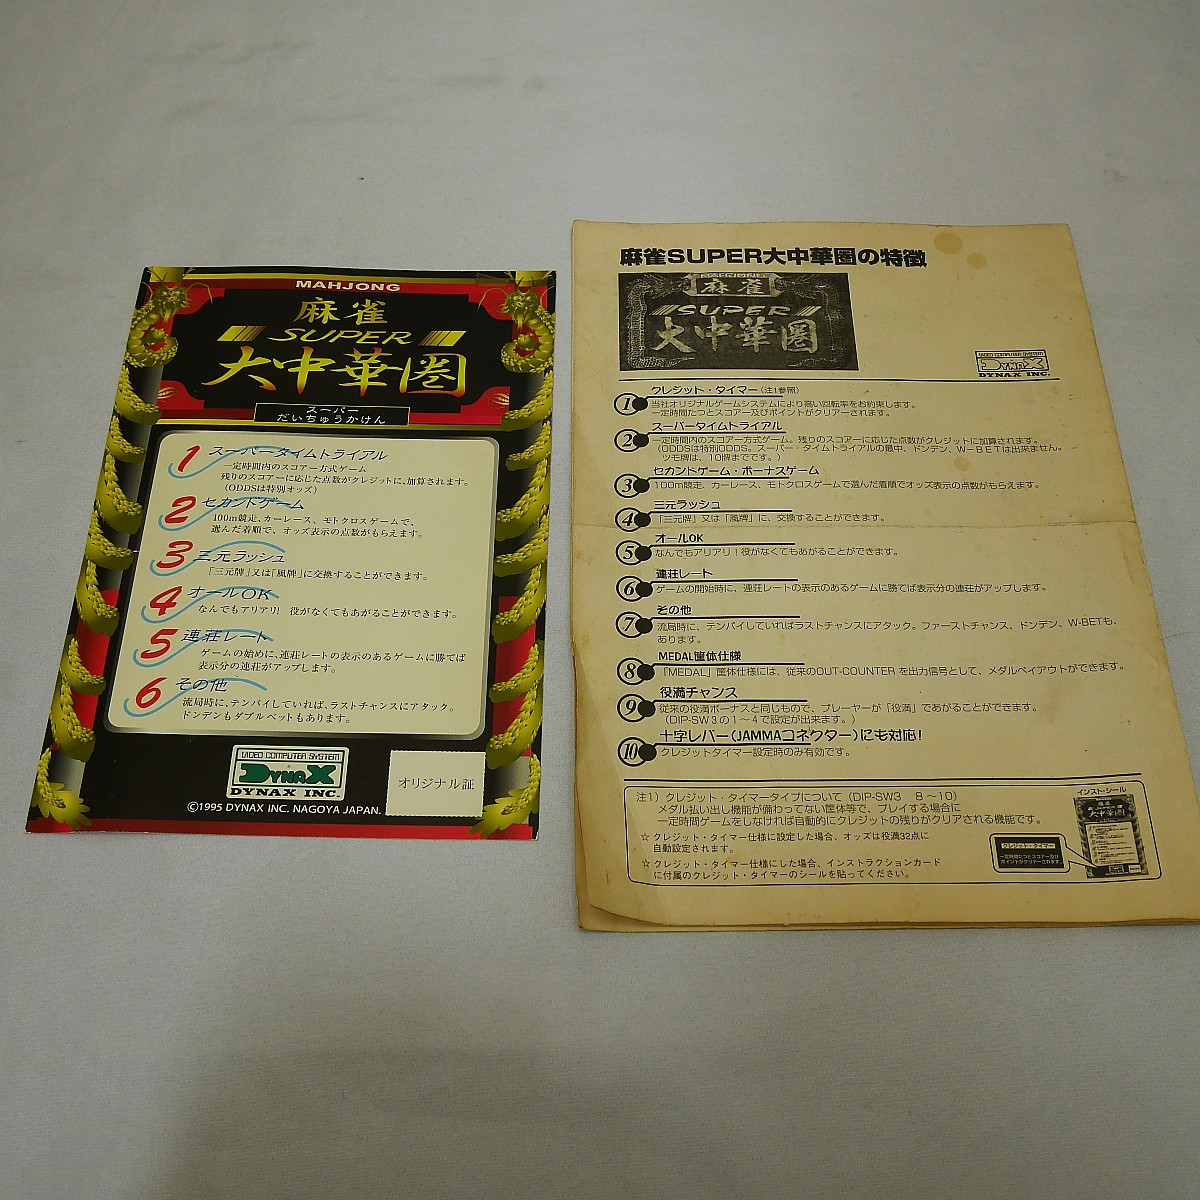 MAHJONG
麻雀
SUPER
大中華圏
スーパー
だいちゅうかけん
1 スーパータイムトライアル
一定時間内のスコアー方式ゲーム
残りのスコアーに応じた点数がクレジットに、加算されます。
(ODDSは特別オッズ)
2 セカンドゲーム
100m競走、カーレース、モトクロスゲームで、
選んだ着順で、オッズ表示の点数がもらえます。
3 三元ラッシュ
「三元牌」又は「風牌」に交換することができます。
4 オールOK
なんでもアリアリ! 役がなくてもあがることができます。
5 連荘レート
ゲームの始めに、連荘レートの表示のあるゲームに勝てば
表示分の連荘がアップします。
6 その他
流局時に、テンパイしていれば、ラストチャンスにアタック。
ドンデンもダブルベットもあります。
VIDEO COMPUTER SYSTEM
DYNAX
DYNAX INC.
オリジナル証
©1995 DYNAX INC. NAGOYA JAPAN.
麻雀SUPER大中華圏の特徴
MAHJONG
麻雀
SUPER
大中華圏
VIDEO COMPUTER SYSTEM
DYNAX
DYNAX INC.
1 クレジット・タイマー(注1参照)
当社オリジナルゲームシステムにより高い回転率をお約束します。
一定時間たつとスコアー及びポイントがクリアーされます。
2 スーパータイムトライアル
一定時間内のスコアー方式ゲーム。残りのスコアーに応じた点数がクレジットに加算されます。
(ODDSは特別ODDS。スーパー・タイムトライアルの最中、ドンデン、W-BETは出来ません。
ツモ牌は、10牌までです。)
3 セカンドゲーム・ボーナスゲーム
100m競走、カーレース、モトクロスゲームで選んだ着順でオッズ表示の点数がもらえます。
4 三元ラッシュ
「三元牌」又は「風牌」に、交換することができます。
5 オールOK
なんでもアリアリ!役がなくてもあがることができます。
6 連荘レート
ゲームの開始時に、連荘レートの表示のあるゲームに勝てば表示分の連荘がアップします。
7 その他
流局時に、テンパイしていればラストチャンスにアタック。ファーストチャンス、ドンデン、W-BETも、
あります。
8 MEDAL筐体仕様
「MEDAL」筐体仕様には、従来のOUT-COUNTERを出力信号として、メダルペイアウトができます。
9 役満チャンス
従来の役満ボーナスと同じもので、プレーヤーが「役満」であがることができます。
(DIP-SW3の1~4で設定が出来ます。)
10 十字レバー(JAMMAコネクター)にも対応!
クレジットタイマー設定時のみ有効です。
注1)クレジット・タイマータイプについて(DIP-SW3 8~10)
メダル払い出し機能が備わってない筐体等で、プレイする場合に
一定時間ゲームをしなければ自動的にクレジットの残りがクリアされる機能です。
☆クレジット・タイマー仕様に設定した場合、オッズは役満32点に
自動設定されます。
☆クレジット・タイマー仕様にした場合、インストラクションカード
に付属のクレジット・タイマーのシールを貼ってください。
クレジット・タイマー
一定時間たつとスコア及び
ポイントがクリアーされます。
インスト・シール
麻雀
大中華圏